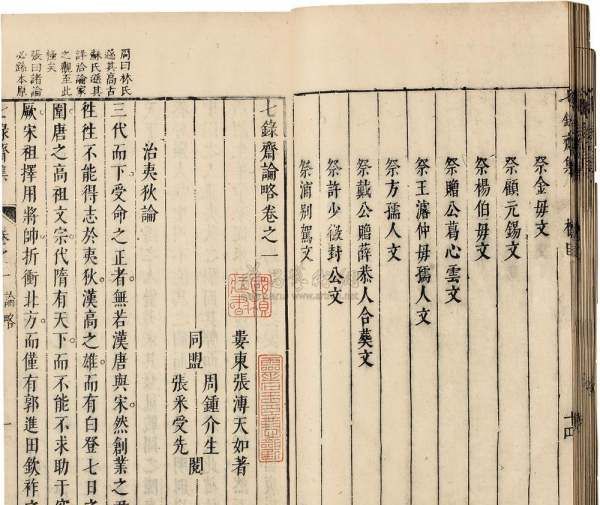 祭金母文
祭顧元錫文
祭楊伯母文
祭贈公葛心雲文
祭王濬仲母孺人文
祭方孺人文
祭戴公贈薛恭人合葬文
祭許少微封公文
祭浦別駕文
七錄齋論略卷之一
婁東張溥天如著
同盟
周鍾介生
張采受先
閱
治夷狄論
三代而下受命之正者無若漢唐與宋然創業之君
徃徃不能得志於夷狄漢高之雄而有白登七日之
圍唐之高祖文宗代隋有天下而不能不求助于突
厥宋祖擇用將帥折衝北方而僅有郭進田欽祚之
周曰林氏
遜其高古
蘇氏遜其
詳洽論家
之觀至此
極矣
張曰諸論
必歸本原
七錄齋集
卷之一
論略
一